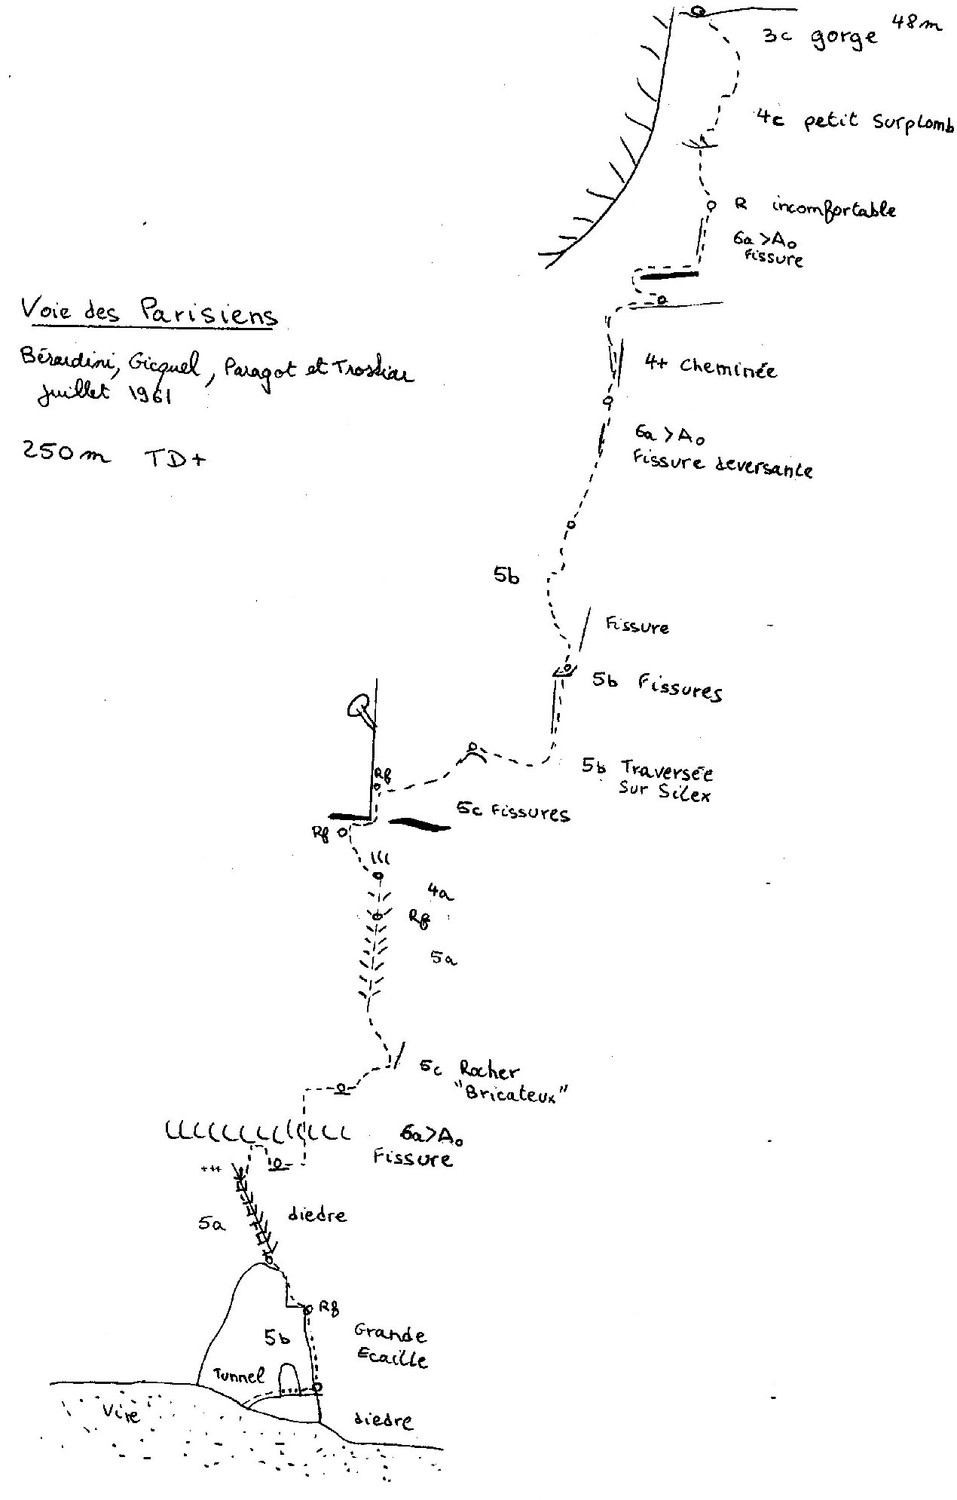 48m
3c gorge
4c petit Surplomb
R incomfortable
6a > A0
Fissure
Voie des Parisiens
Bérardini, Gicquel, Paragot et
Juillet 1961
250m TD+
4+ Cheminée
6a > A0
Fissure deversante
5b
Fissure
5b Fissures
5b Traversée
Sur Silex
Rf
5c Fissures
Rf
4a
Rf
5a
5c Rocher
"Bricateux"
6a > A0
Fissure
+++
5a
diedre
Rf
5b
Grande
Ecaille
Tunnel
Vire
diedre